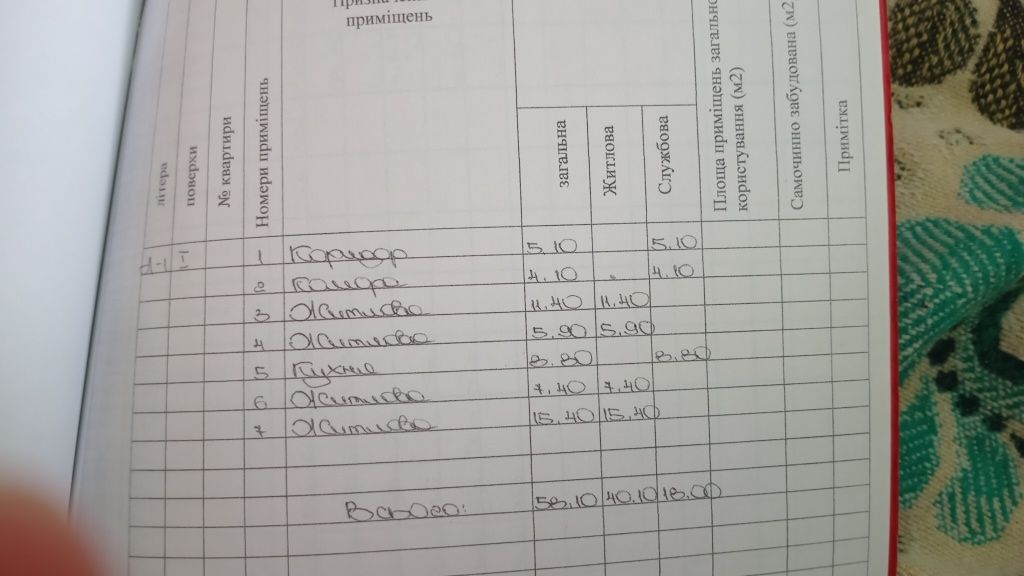 приміщень
літера
поверхи
№ квартири
Номери приміщень
загальна
Житлова
Службова
Площа приміщень загального
користування (м2)
Самочинно забудована (м2)
Примітка
1 Коридор 5.10 5.10
2 Комора 4.10 4.10
3 Житлова 11.40 11.40
4 Житлова 5.90 5.90
5 Кухня 8.80 8.80
6 Житлова 7.40 7.40
7 Житлова 15.40 15.40
Всього: 58.10 40.10 18.00